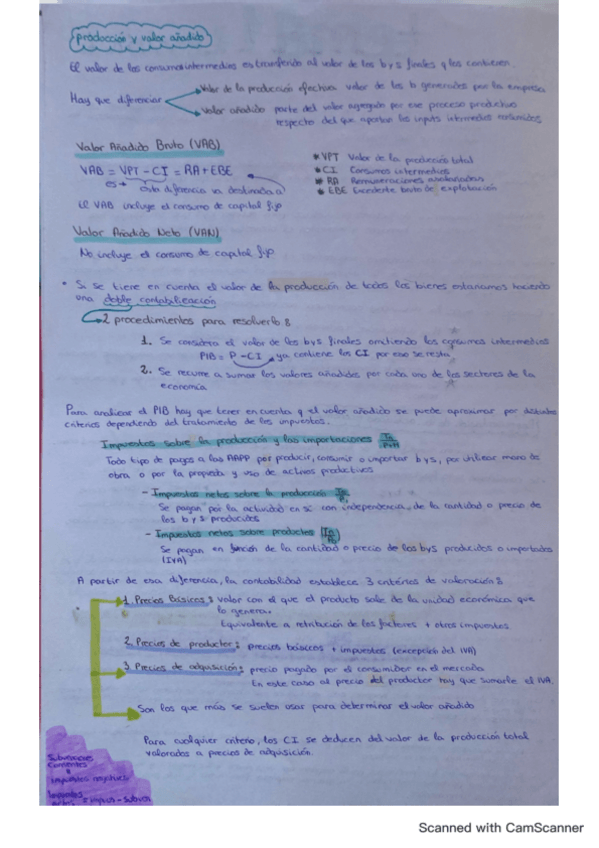 producción y valor añadido
El valor de los consumos intermedios es transferido al valor de los b y s finales q los contienen.
Hay que diferenciar
Valor de la producción efectiva valor de los b generados por la empresa
Valor añadido parte del valor agregado por ese proceso productivo
respecto del que aportan los inputs intermedios contenidos
Valor Añadido Bruto (VAB)
VAB = VPT - CI = RA + EBE
esta diferencia va destinada a
El VAB incluye el consumo de capital fijo
* VPT Valor de la producción total
* CI Consumos intermedios
* RA Remuneraciones asalariados
* EBE Excedente bruto de explotación
Valor Añadido Neto (VAN)
No incluye el consumo de capital fijo
• Si se tiene en cuenta el valor de la producción de todos los bienes estaríamos haciendo
una doble contabilización
2 procedimientos para resolverlo:
1. Se considera el valor de los bys finales omitiendo los consumos intermedios
PIB = P - CI ya contiene los CI por eso se resta
2. Se recurre a sumar los valores añadidos por cada uno de los sectores de la
economía
Para analizar el PIB hay que tener en cuenta q el valor añadido se puede aproximar por distintos
criterios dependiendo del tratamiento de los impuestos.
Impuestos sobre la producción y las importaciones
Todo tipo de pagos a las AAPP por producir, consumir o importar b y s, por utilizar mano de
obra o por la propiedad y uso de activos productivos
- Impuestos netos sobre la producción
Se pagan por la actividad en sí con independencia de la cantidad o precio de
los b y s producidos
- Impuestos netos sobre productos
Se pagan en función de la cantidad o precio de los bys producidos o importados
(IVA)
A partir de esa diferencia, la contabilidad establece 3 criterios de valoración:
1. Precios básicos: valor con el que el producto sale de la unidad económica que
lo genera.
Equivalente a retribución de los factores + otros impuestos
2. Precios de productor: precios básicos + impuestos (excepción del IVA)
3. Precios de adquisición: precio pagado por el consumidor en el mercado
En este caso al precio del productor hay que sumarle el IVA.
Son los que más se suelen usar para determinar el valor añadido
Para cualquier criterio, los CI se deducen del valor de la producción total
valorados a precios de adquisición.
Subvenciones
corrientes
impuestos negativos
Impuestos
Scanned with CamScanner